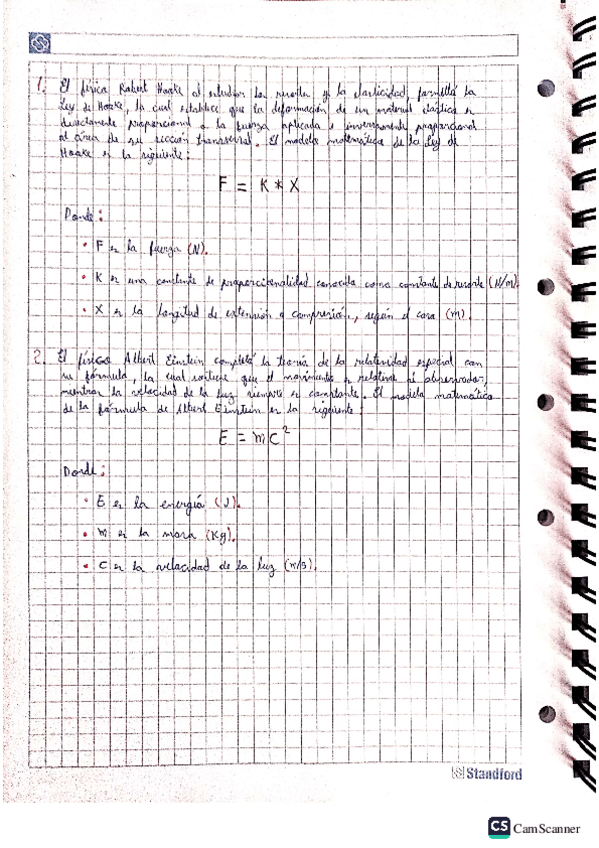 1. El físico Robert Hooke al estudiar los resortes y la elasticidad, formuló la
Ley de Hooke, la cual establece que la deformación de un material elástico es
directamente proporcional a la fuerza aplicada e inversamente proporcional
al área de su sección transversal. El modelo matemático de la Ley de
Hooke es la siguiente:
F = K * X
Donde:
• F es la fuerza (N).
• K es una constante de proporcionalidad conocida como constante de resorte (N/m).
• X es la longitud de extensión o compresión, según el caso (m).
2. El físico Albert Einstein completó la teoría de la relatividad especial con
su fórmula, la cual sostiene que el movimiento es relativo al observador,
mientras la velocidad de la luz siempre es constante. El modelo matemático
de la fórmula de Albert Einstein es la siguiente:
E = mc²
Donde:
• E es la energía (J).
• m es la masa (Kg).
• C es la velocidad de la luz (m/s).
Standford
CS CamScanner